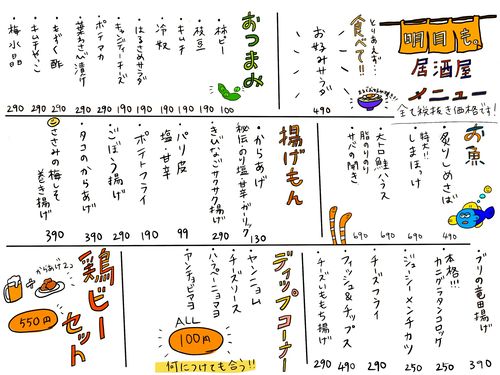 明日も。
居酒屋
メニュー
全て税抜き価格です!
とりあえず…
食べて!!
お好みサラダ
490
おつまみ
・柿ピー 100
・枝豆 190
・キムチ 190
・冷奴 190
・はるさめサラダ 190
・キャンディーチーズ 190
・ポテマカ 190
・葉わさび漬け 290
・もずく酢 290
・キムチやっこ 290
・梅水晶 290
お魚
・炙りしめさば 490
・特大!!
しまほっけ 690
・トロ鮭ハラス 690
・脂のりのり
サバの開き 690
揚げもん
・からあげ 130
秘伝のり塩・辛ガーリック
・きびなごサクサク揚げ 290
・パリ皮 99
塩・甘辛
・ポテトフライ 190
・ごぼう揚げ 290
・タコのからあげ 390
・ささみの梅しそ
巻き揚げ 390
・ブリの竜田揚げ 390
・本格!!!
カニグラタンコロッケ 250
・ジューシーメンチカツ 250
・チーズフライ 290
・フィッシュ&チップス 490
・チーズいももち揚げ 290
ディップコーナー
・ヤンニョム
・チーズソース
・ハラペーニョマヨ
・アンチョビマヨ
ALL
100円
何につけても合う!!
鶏ビー
セット
からあげ2コ
550円